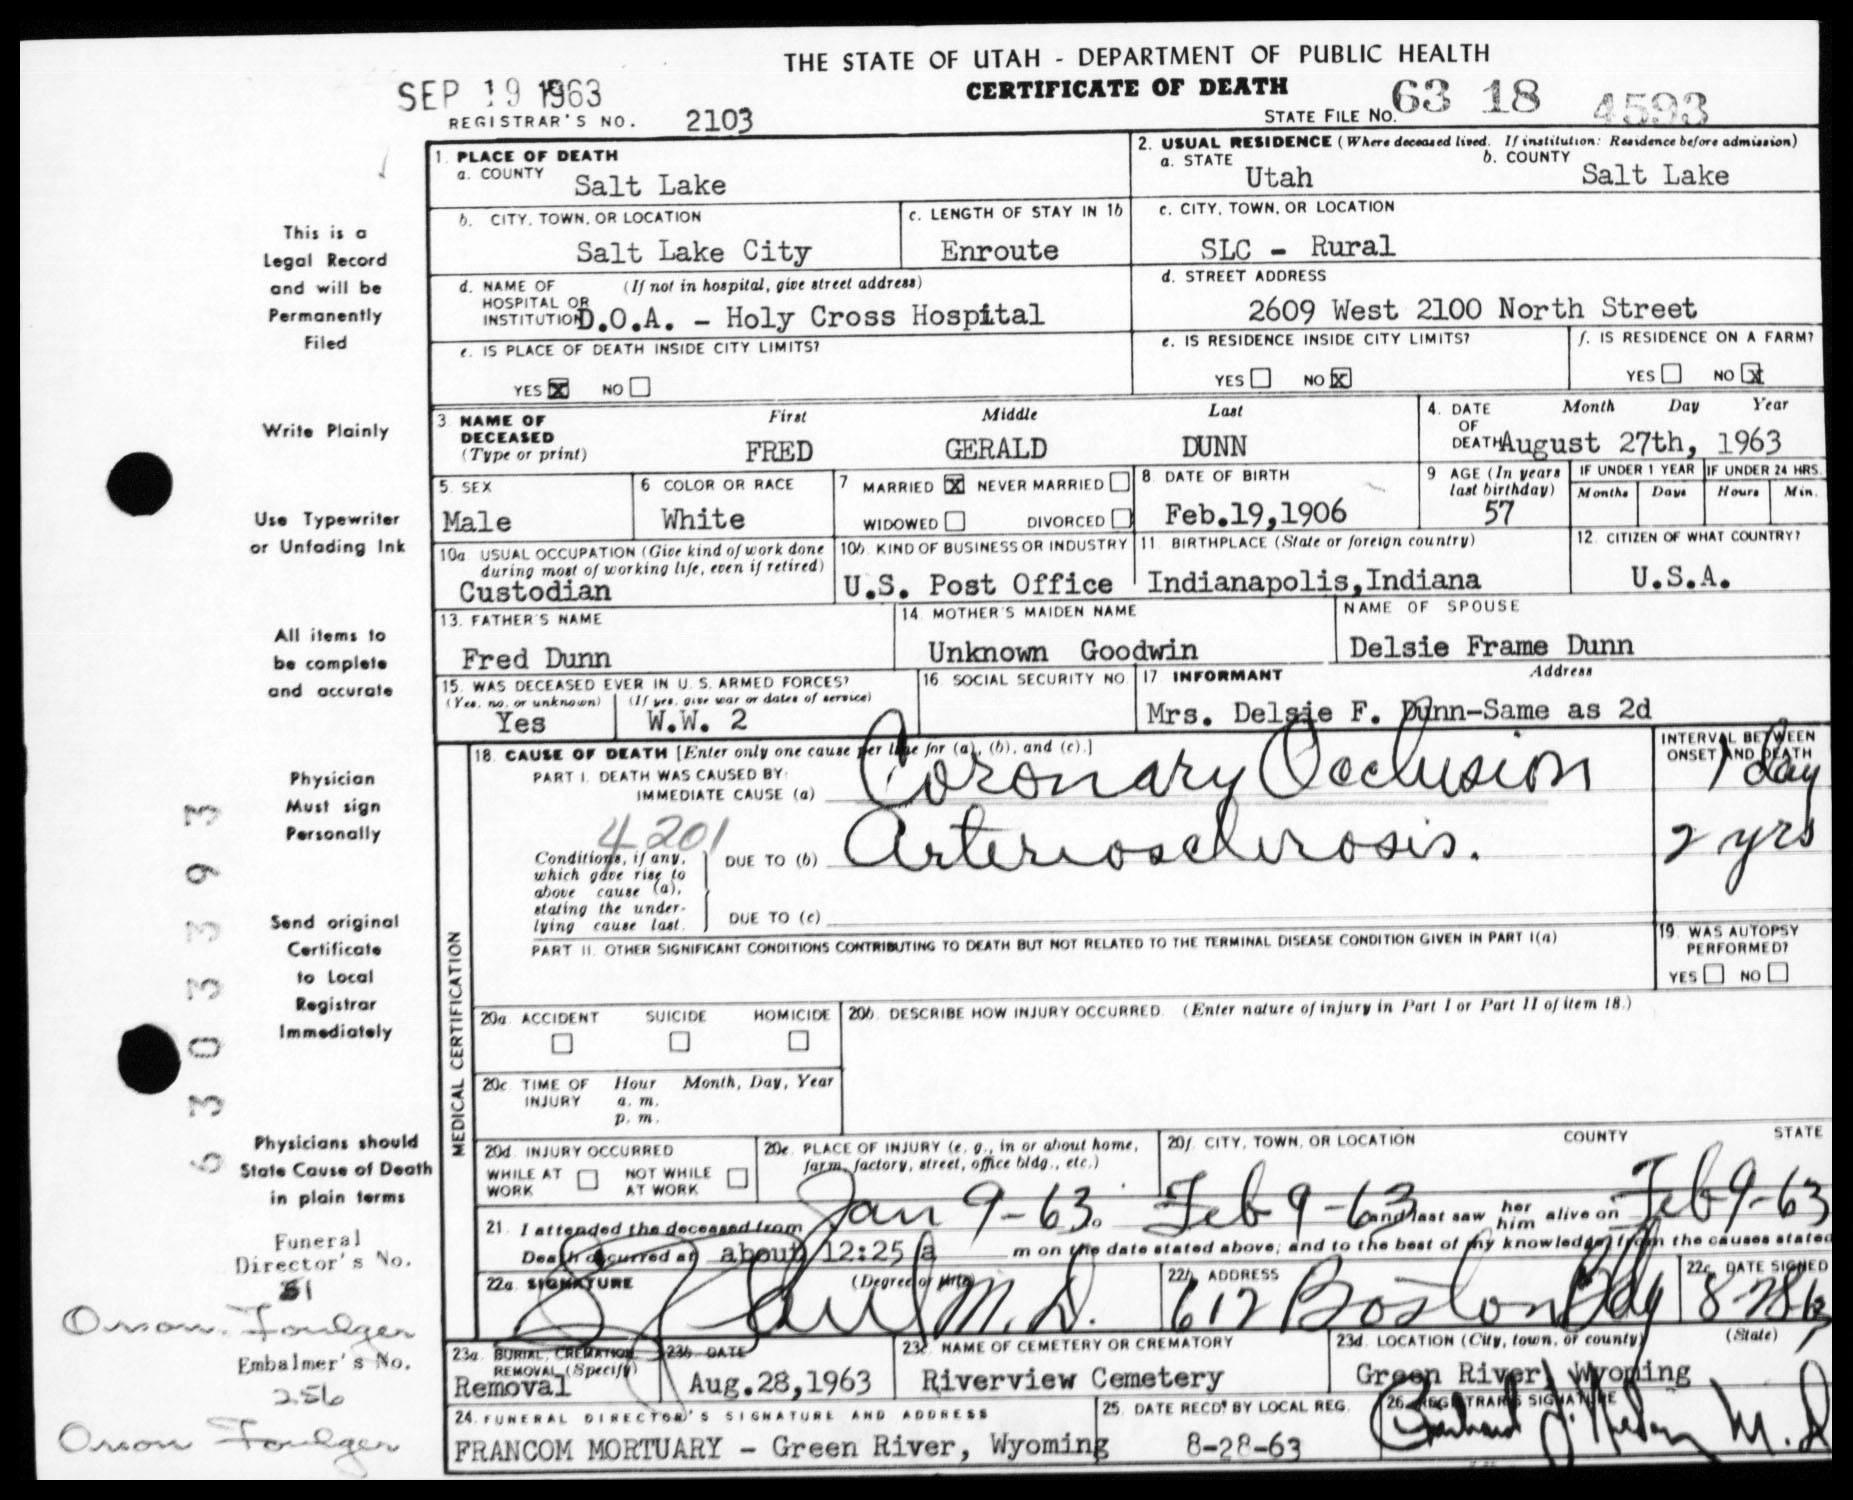 THE STATE OF UTAH - DEPARTMENT OF PUBLIC HEALTH
CERTIFICATE OF DEATH
SEP 19 1963
REGISTRAR'S NO. 2103
STATE FILE NO. 63 18 4593
This is a
Legal Record
and will be
Permanently
Filed
Write Plainly
Use Typewriter
or Unfading Ink
All items to
be complete
and accurate
Physician
Must sign
Personally
Send original
Certificate
to Local
Registrar
Immediately
Physicians should
State Cause of Death
in plain terms
Funeral
Director's No.
51
Orson Foulger
Embalmer's No.
256
Orson Foulger
63033393
1. PLACE OF DEATH
a. COUNTY Salt Lake
2. USUAL RESIDENCE (Where deceased lived. If institution: Residence before admission)
a. STATE Utah b. COUNTY Salt Lake
b. CITY, TOWN, OR LOCATION Salt Lake City
c. LENGTH OF STAY IN 1b Enroute
c. CITY, TOWN, OR LOCATION SLC - Rural
d. NAME OF HOSPITAL OR INSTITUTION (If not in hospital, give street address)
D.O.A. - Holy Cross Hospital
d. STREET ADDRESS 2609 West 2100 North Street
e. IS PLACE OF DEATH INSIDE CITY LIMITS?
YES X NO
e. IS RESIDENCE INSIDE CITY LIMITS?
YES NO X
f. IS RESIDENCE ON A FARM?
YES NO X
3. NAME OF DECEASED (Type or print) First Middle Last
FRED GERALD DUNN
4. DATE OF DEATH Month Day Year
August 27th, 1963
5. SEX Male
6 COLOR OR RACE White
7 MARRIED X NEVER MARRIED
WIDOWED DIVORCED
8. DATE OF BIRTH Feb.19,1906
9 AGE (In years last birthday) 57
IF UNDER 1 YEAR Months Days
IF UNDER 24 HRS. Hours Min.
10a. USUAL OCCUPATION (Give kind of work done during most of working life, even if retired)
Custodian
10b. KIND OF BUSINESS OR INDUSTRY U.S. Post Office
11 BIRTHPLACE (State or foreign country) Indianapolis,Indiana
12. CITIZEN OF WHAT COUNTRY? U.S.A.
13. FATHER'S NAME Fred Dunn
14. MOTHER'S MAIDEN NAME Unknown Goodwin
NAME OF SPOUSE Delsie Frame Dunn
15. WAS DECEASED EVER IN U. S. ARMED FORCES?
(Yes, no, or unknown) Yes
(If yes, give war or dates of service) W.W. 2
16. SOCIAL SECURITY NO.
17. INFORMANT Address
Mrs. Delsie F. Dunn-Same as 2d
MEDICAL CERTIFICATION
18. CAUSE OF DEATH [Enter only one cause per line for (a), (b), and (c).]
PART I. DEATH WAS CAUSED BY:
IMMEDIATE CAUSE (a) Coronary Occlusion
INTERVAL BETWEEN ONSET AND DEATH
1 day
4201
Conditions, if any, which gave rise to above cause (a), stating the underlying cause last.
DUE TO (b) Arteriosclerosis. 2 yrs
DUE TO (c)
PART II. OTHER SIGNIFICANT CONDITIONS CONTRIBUTING TO DEATH BUT NOT RELATED TO THE TERMINAL DISEASE CONDITION GIVEN IN PART I(a)
19. WAS AUTOPSY PERFORMED?
YES NO
20a. ACCIDENT SUICIDE HOMICIDE
20b. DESCRIBE HOW INJURY OCCURRED. (Enter nature of injury in Part I or Part II of item 18.)
20c. TIME OF INJURY Hour Month, Day, Year
a. m.
p. m.
20d. INJURY OCCURRED
WHILE AT WORK NOT WHILE AT WORK
20e. PLACE OF INJURY (e. g., in or about home, farm, factory, street, office bldg., etc.)
20f. CITY, TOWN, OR LOCATION COUNTY STATE
21. I attended the deceased from Jan 9-63. Feb 9-63 and last saw her him alive on Feb 9-63
Death occurred at about 12:25 a m on the date stated above; and to the best of my knowledge from the causes stated
22a. SIGNATURE (Degree or title)
M.D.
22b. ADDRESS 612 Boston Bldg
22c. DATE SIGNED 8-28-63
23a. BURIAL, CREMATION, REMOVAL (Specify) Removal
23b. DATE Aug.28,1963
23c. NAME OF CEMETERY OR CREMATORY Riverview Cemetery
23d. LOCATION (City, town, or county) (State)
Green River, Wyoming
24. FUNERAL DIRECTOR'S SIGNATURE AND ADDRESS
FRANCOM MORTUARY - Green River, Wyoming
25. DATE RECD. BY LOCAL REG. 8-28-63
26. REGISTRAR'S SIGNATURE
M.D.